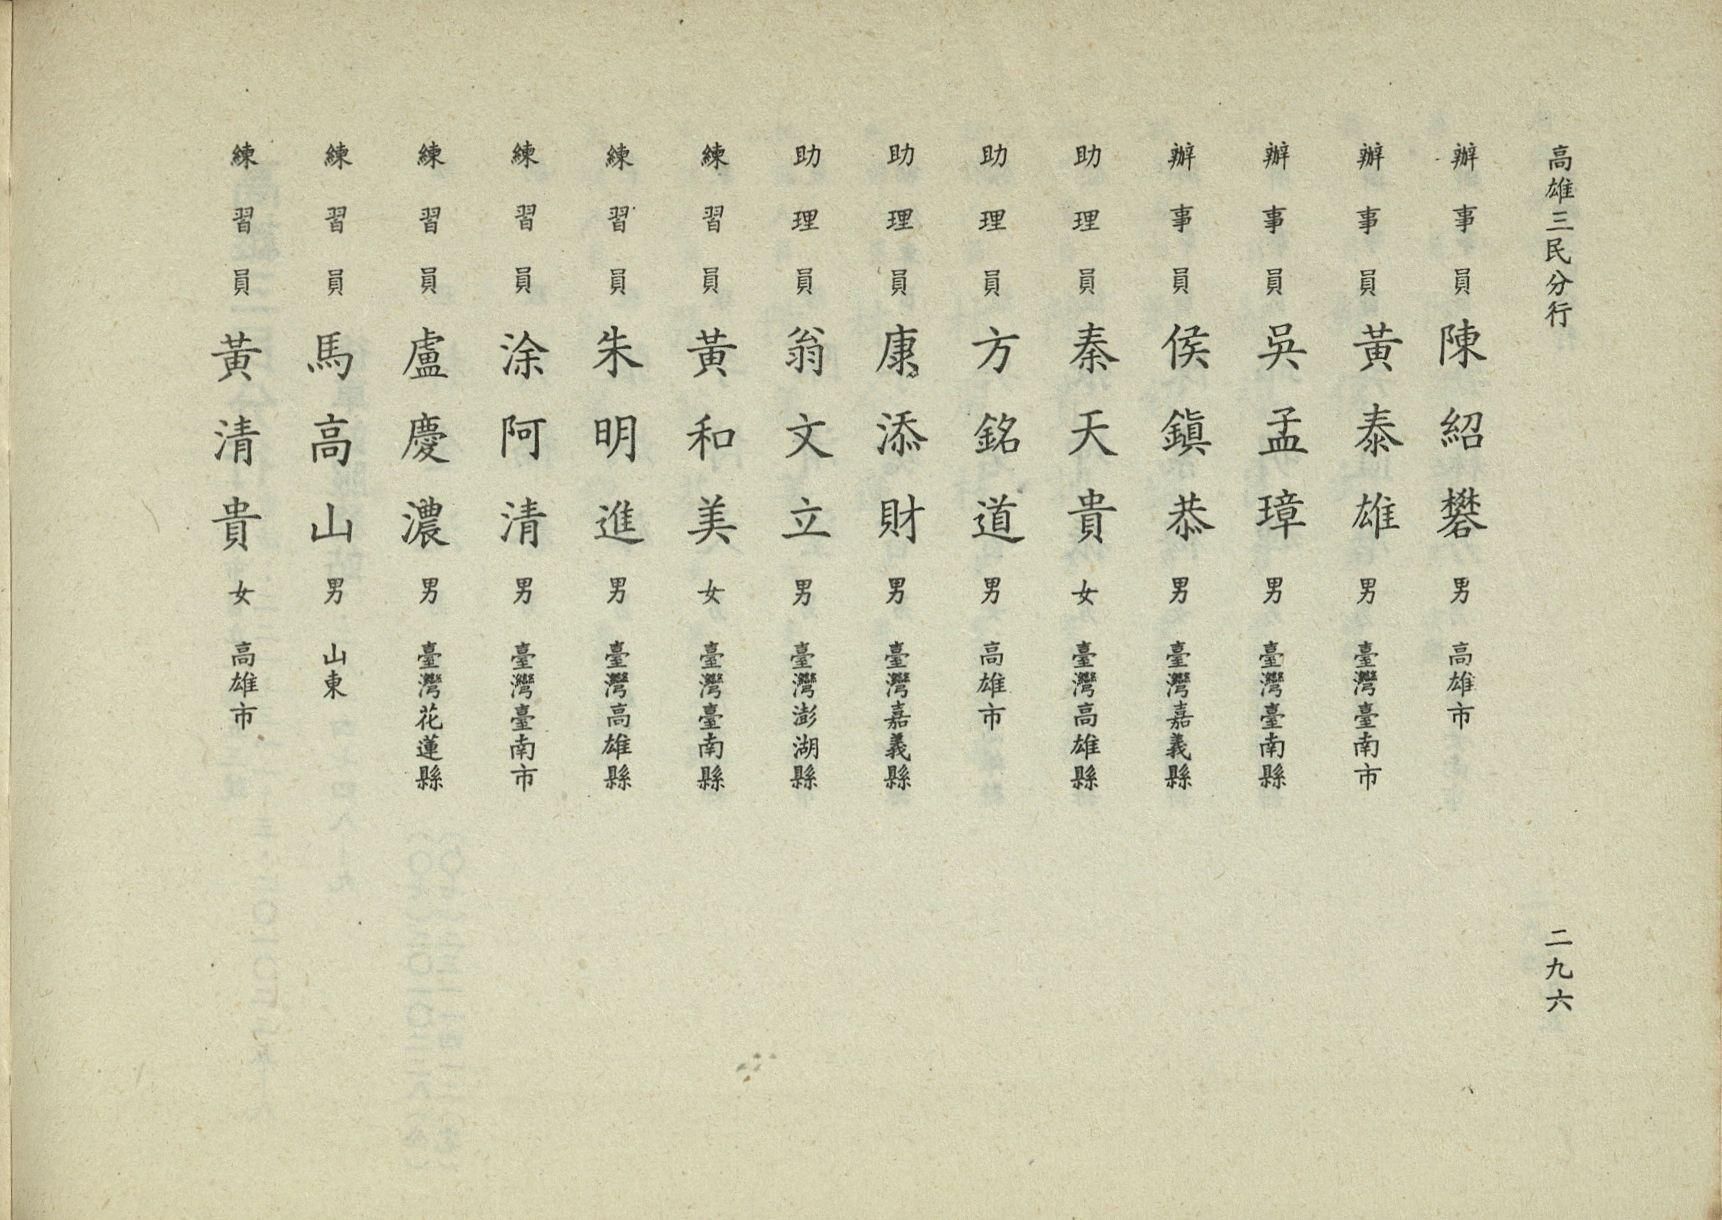 高雄三民分行 二九六
辦事員 陳紹礬 男 高雄市
辦事員 黃泰雄 男 臺灣臺南市
辦事員 吳孟璋 男 臺灣臺南縣
辦事員 侯鎮恭 男 臺灣嘉義縣
助理員 秦天貴 女 臺灣高雄縣
助理員 方銘道 男 高雄市
助理員 康添財 男 臺灣嘉義縣
助理員 翁文立 男 臺灣澎湖縣
練習員 黃和美 女 臺灣臺南縣
練習員 朱明進 男 臺灣高雄縣
練習員 涂阿清 男 臺灣臺南市
練習員 盧慶濃 男 臺灣花蓮縣
練習員 馬高山 男 山東
練習員 黃清貴 女 高雄市